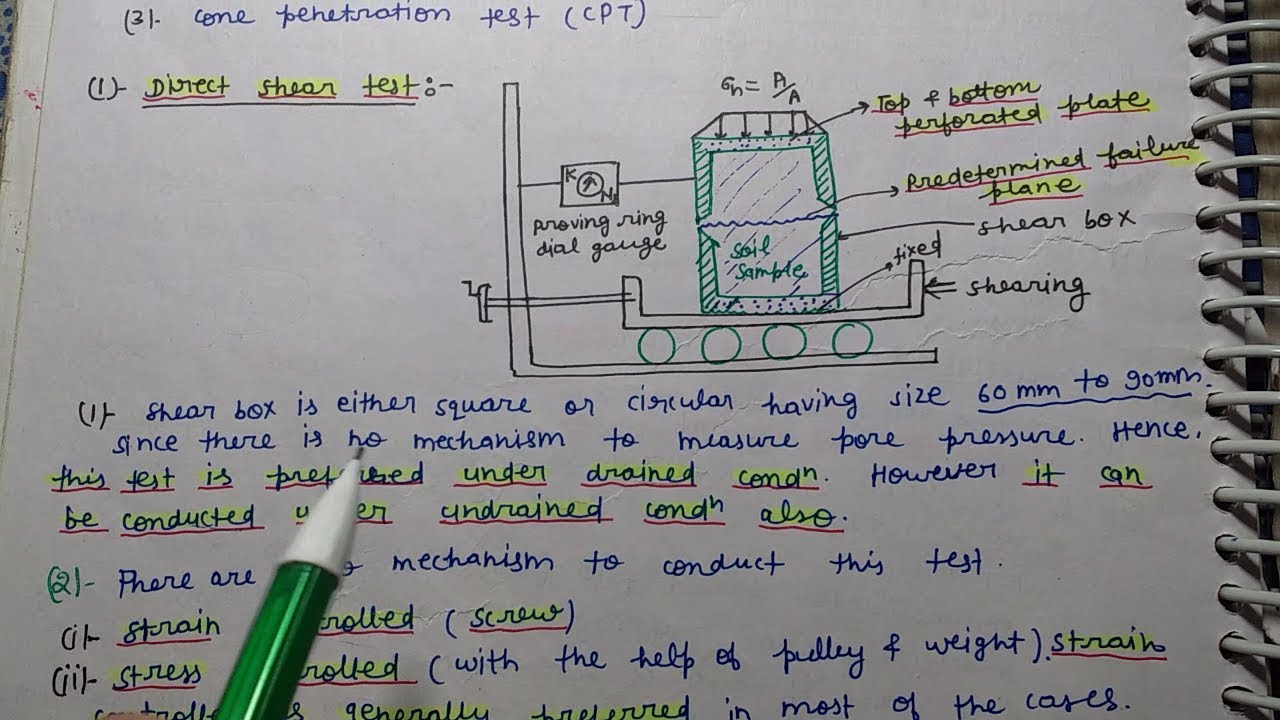 (3)- cone penetration test (CPT)
(1)- Direct shear test:-
σn = P/A
Top & bottom
perforated plate
predetermined failure
plane
K
proving ring
dial gauge
shear box
soil
sample
fixed
shearing
(1)- shear box is either square or circular having size 60 mm to 90mm.
since there is no mechanism to measure pore pressure. Hence,
this test is under drained condⁿ. However it can
be conducted undrained condⁿ also.
(2)- There are mechanism to conduct this test.
(i)- strain (screw)
(ii)- stress (with the help of pulley & weight). strain
generally preferred in most of the cases.